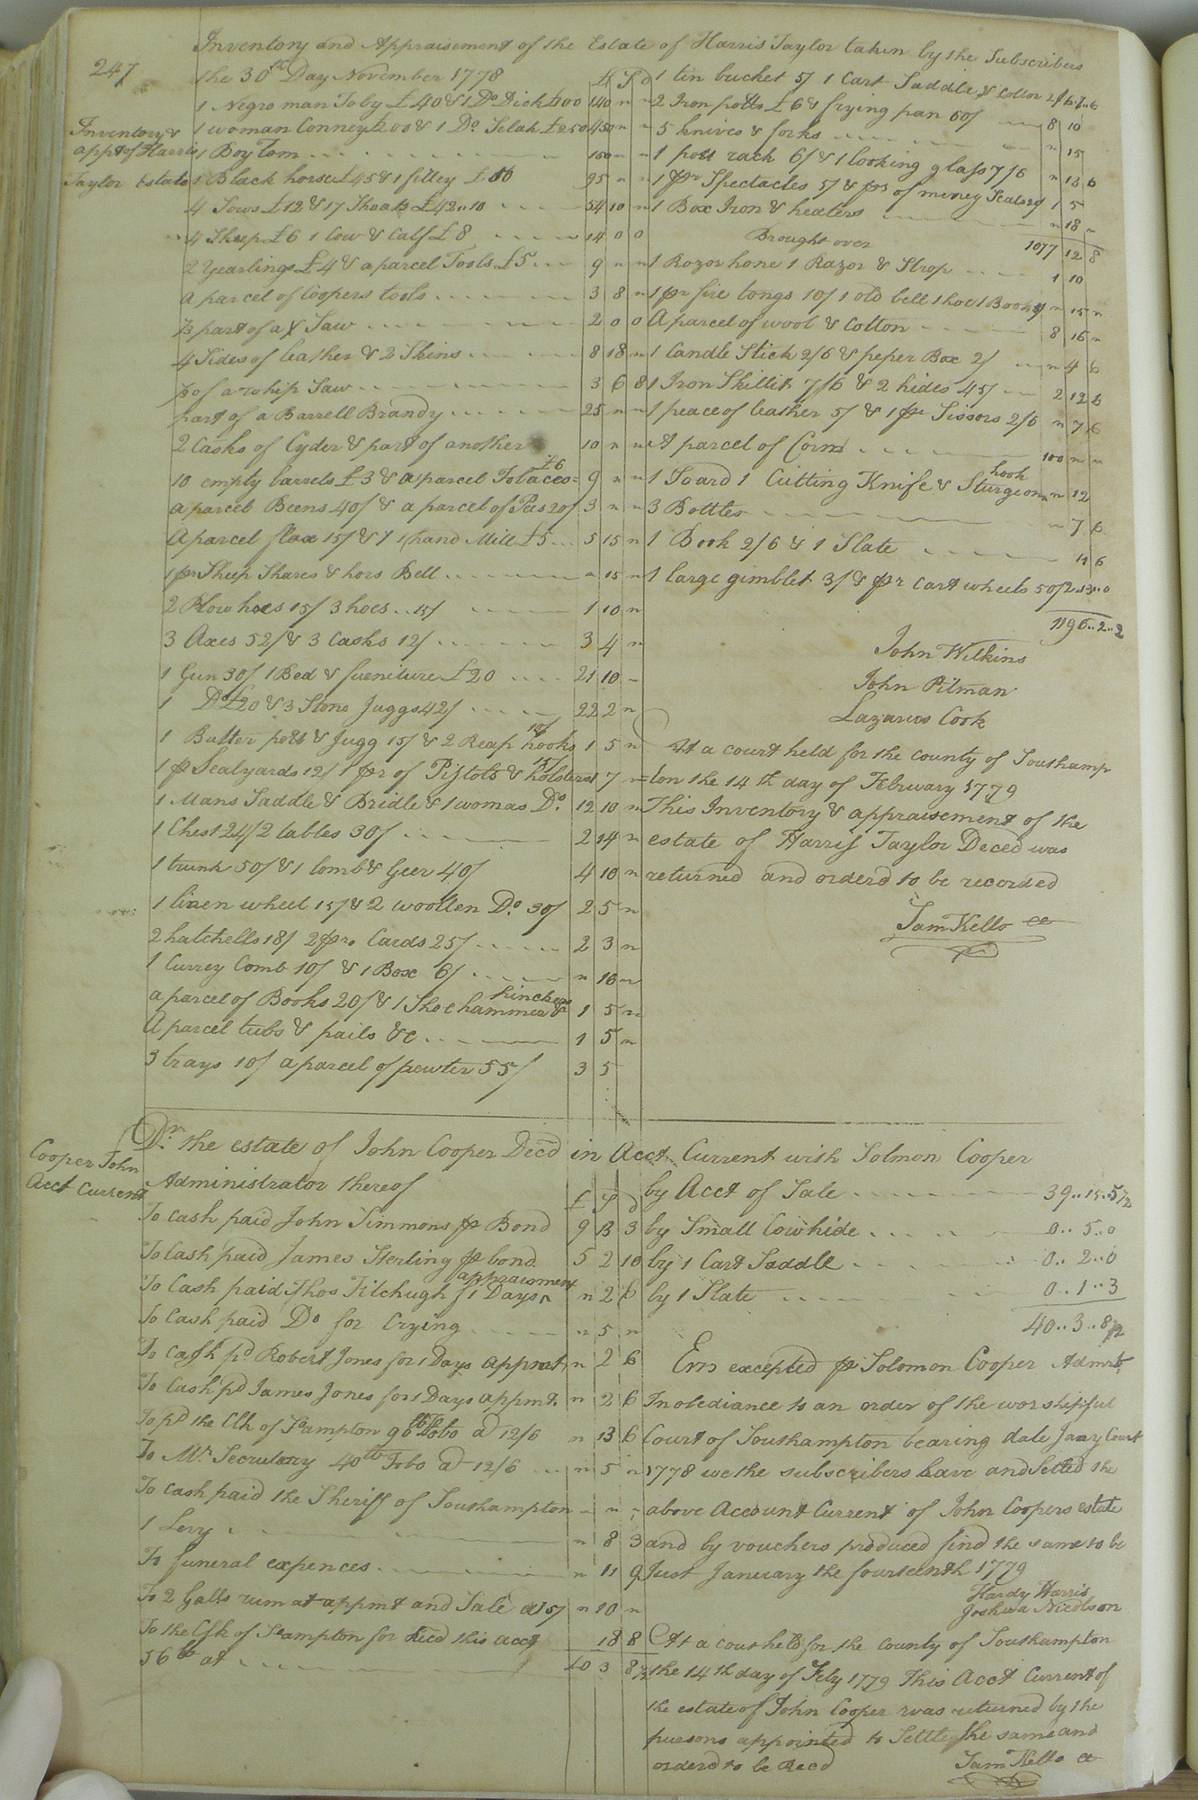 247
Inventory and Appraisement of the Estate of Harris Taylor taken by the Subscribers
the 30th Day November 1778 £ S d
Inventory &
appt of Harris
Taylor Estate
1 Negro man Toby £40 & 1 Do Dick £100 140 " "
1 woman Conney £200 & 1 Do Selah £250 450 " "
1 Boy Tom 150 " "
1 Black horse £45 & 1 filley £50 95 " "
4 Sows £12 & 17 Shoats £42..10 54 10 "
4 Sheep £6 1 Cow & Calf £8 14 0 0
2 Yearlings £4 & a parcel Tools £5 9 " "
a parcel of Coopers tools 3 8 "
part of a X Saw 2 0 0
4 Sides of leather & 2 Skins 8 18 "
of a whip Saw 3 6 8
part of a Barrell Brandy 25 " "
2 Casks of Cyder & part of another 10 " "
10 empty barrels £3 & a parcel Tobacco £6 9 " "
a parcel Beens 40/ & a parcel of Pees 20/ 3 " "
A parcel flax 15/ & 1 hand Mill £5 5 15 "
1 pr Sheep Shares & hors Bell " 15 "
2 Plow hoes 15/ 3 hoes 15/ 1 10 "
3 Axes 52/ & 3 Casks 12/ 3 4 "
1 Gun 30/ 1 Bed & fueniture £20 21 10 "
1 Do £20 & 3 Stone Juggs 42/ 22 2 "
1 Butter pott & Jugg 15/ & 2 Reap hooks 10/ 1 5 "
1 pr Sealyards 12/ 1 pr of Pistols & holsters 15/ 1 7 "
1 Mans Saddle & Bridle & 1 womas Do 12 10 "
1 Chest 24/ 2 tables 30/ 2 14 "
1 trunk 50/ & 1 lomb & Geer 40/ 4 10 "
1 linen wheel 15/ & 2 woollen Do 30/ 2 5 "
2 hatchells 18/ 2 prs Cards 25/ 2 3 "
1 Currey Comb 10/ & 1 Box 6/ " 16 "
a parcel of Books 20/ & 1 Shoe hammer & pinchers 1 5 "
A parcel tubs & pails &c 1 5 "
3 trays 10/ a parcel of pewter 55/ 3 5
1 tin bucket 5/ 1 Cart Saddle & Collor 2/6 " 7 6
2 Iron potts £6 & frying pan 50/ 8 10
5 knives & forks " 15
1 pott rack 6/ & 1 looking glass 7/6 " 13 6
1 pr Spectacles 5/ & prs of money Scales 1 5
1 Box Iron & heaters " 18 "
Brought over 1077 12 8
1 Rozor hone 1 Razor & Strop 1 10
1 pr fire tongs 10/ 1 old bell 1 hoe 1 Book " 15 "
A parcel of wool & Cotton 8 16 "
1 Candle Stick 2/6 & peper Box 2/ " 4 6
1 Iron Skillet 7/6 & 2 hides 45/ 2 12 6
1 peace of leather 5/ & 1 pr Sissors 2/6 " 7 6
A parcel of Corn 100 " "
1 Soard 1 Cutting Knife & Sturgeon hook " 12
3 Bottles " 7 6
1 Book 2/6 & 1 Slate 6
1 large gimblet 3/ & pr cart wheels 50/ 2..13..0
1196..2..2
John Wilkins
John Pitman
Lazarus Cook
At a court held for the county of Southamp
ton the 14th day of February 1779
This Inventory & appraisement of the
estate of Harris Taylor Deced was
returned and orderd to be recorded
Sam Kello CC
Cooper John
Acct Current
Dr the estate of John Cooper Decd in Acct Current with Solmon Cooper
Administrator thereof £ S D
To cash paid John Simmons pr Bond 9 13 3
To Cash paid James Sterling pr bond 5 2 10
To Cash paid Thos Fitchugh f 1 Days appraisment " 2 6
To Cash paid Do for Crying " 5 "
To cash pd Robert Jones for 1 Days appmt " 2 6
To Cash pd James Jones for 1 Days appmt " 2 6
To pd the Clk of Sampton Tobo a 12/6 " 13 6
To Mr Secretary 40lb Tobo a 12/6 " 5 "
To cash paid the Sheriff of Southampton " " "
1 Levy " 8 3
To funeral expences " 11 9
To 2 Galls rum at appmt and Sale a 15/ " 10 "
To the Clk of Sampton for Recd this acct 18 8
56lb at 40 3 8½
by Acct of Sale 39..15..5½
by Small Cowhide 0..5..0
by 1 Cart Saddle 0..2..0
by 1 Slate 0..1..3
40..3..8½
Errs excepted pr Solomon Cooper Admr
In obediance to an order of the worshipful
Court of Southampton bearing date Janry Court
1778 we the subscribers have and Setled the
above Account Current of John Coopers estate
and by vouchers produced find the same to be
Just January the fourteenth 1779
Hardy Harris
Joshua Nicolson
At a court held for the county of Southampton
the 14th day of Feby 1779 This Acct Current of
the estate of John Cooper was returned by the
persons appointed to Settle the same and
orderd to be Recd
Sam Kello CC